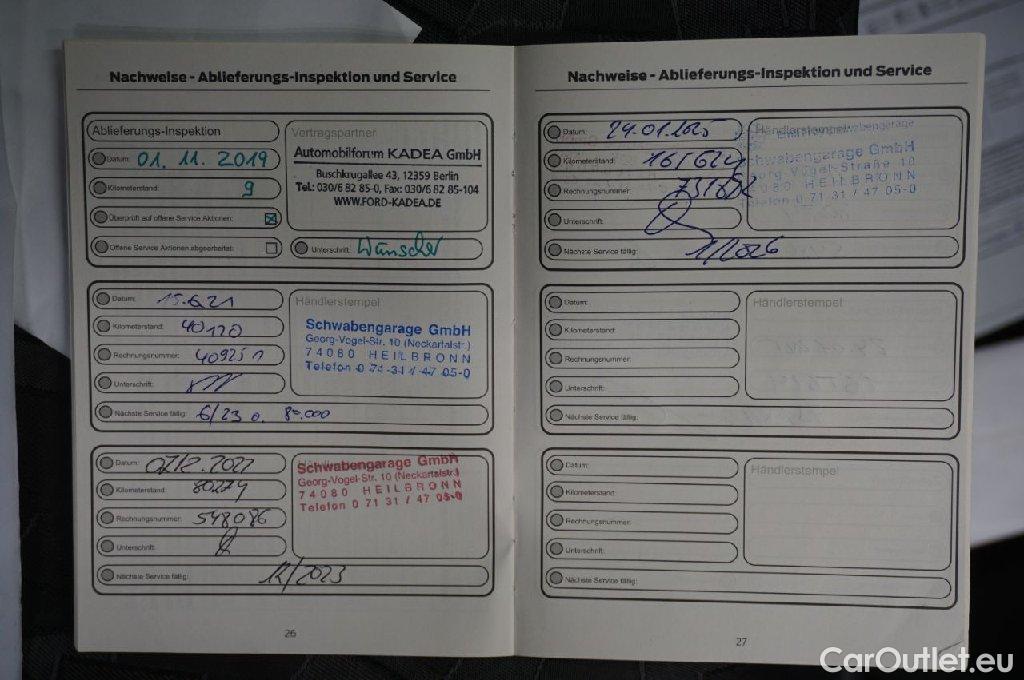 Nachweise - Ablieferungs-Inspektion und Service
Ablieferungs-Inspektion
Datum: 01. 11. 2019
Kilometerstand: 9
Überprüft auf offene Service Aktionen:
Offene Service Aktionen abgearbeitet:
Vertragspartner
Automobilforum KADEA GmbH
Buschkrugallee 43, 12359 Berlin
Tel.: 030/6 82 85-0, Fax: 030/6 82 85-104
WWW.FORD-KADEA.DE
Unterschrift: Wünscher
Datum: 15.6.21
Kilometerstand: 40120
Rechnungsnummer: 409251
Unterschrift:
Nächste Service fällig: 6/23 o. 80.000
Händlerstempel
Schwabengarage GmbH
Georg-Vogel-Str. 10 (Neckartalstr.)
74080 HEILBRONN
Telefon 0 71 31 / 47 05-0
Datum: 07.12.2022
Kilometerstand: 80274
Rechnungsnummer: 548086
Unterschrift:
Nächste Service fällig: 12/2023
Schwabengarage GmbH
Georg-Vogel-Str. 10 (Neckartalstr.)
74080 HEILBRONN
Telefon 0 71 31 / 47 05-0
26
Nachweise - Ablieferungs-Inspektion und Service
Datum: 29.01.2025
Kilometerstand:
Rechnungsnummer:
Unterschrift:
Nächste Service fällig: 1/2026
Händlerstempel
Schwabengarage GmbH
Georg-Vogel-Straße 10
74080 HEILBRONN
Telefon 0 71 31 / 47 05-0
Datum:
Kilometerstand:
Rechnungsnummer:
Unterschrift:
Nächste Service fällig:
Händlerstempel
Datum:
Kilometerstand:
Rechnungsnummer:
Unterschrift:
Nächste Service fällig:
Händlerstempel
27
CarOutlet.eu